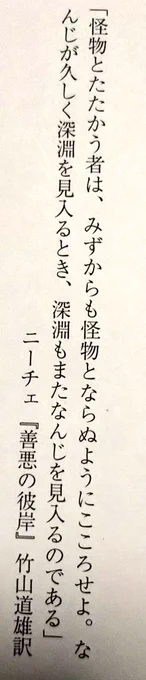 「怪物とたたかう者は、みずからも怪物とならぬようにこころせよ。な
んじが久しく深淵を見入るとき、深淵もまたなんじを見入るのである」
ニーチェ『善悪の彼岸』竹山道雄訳